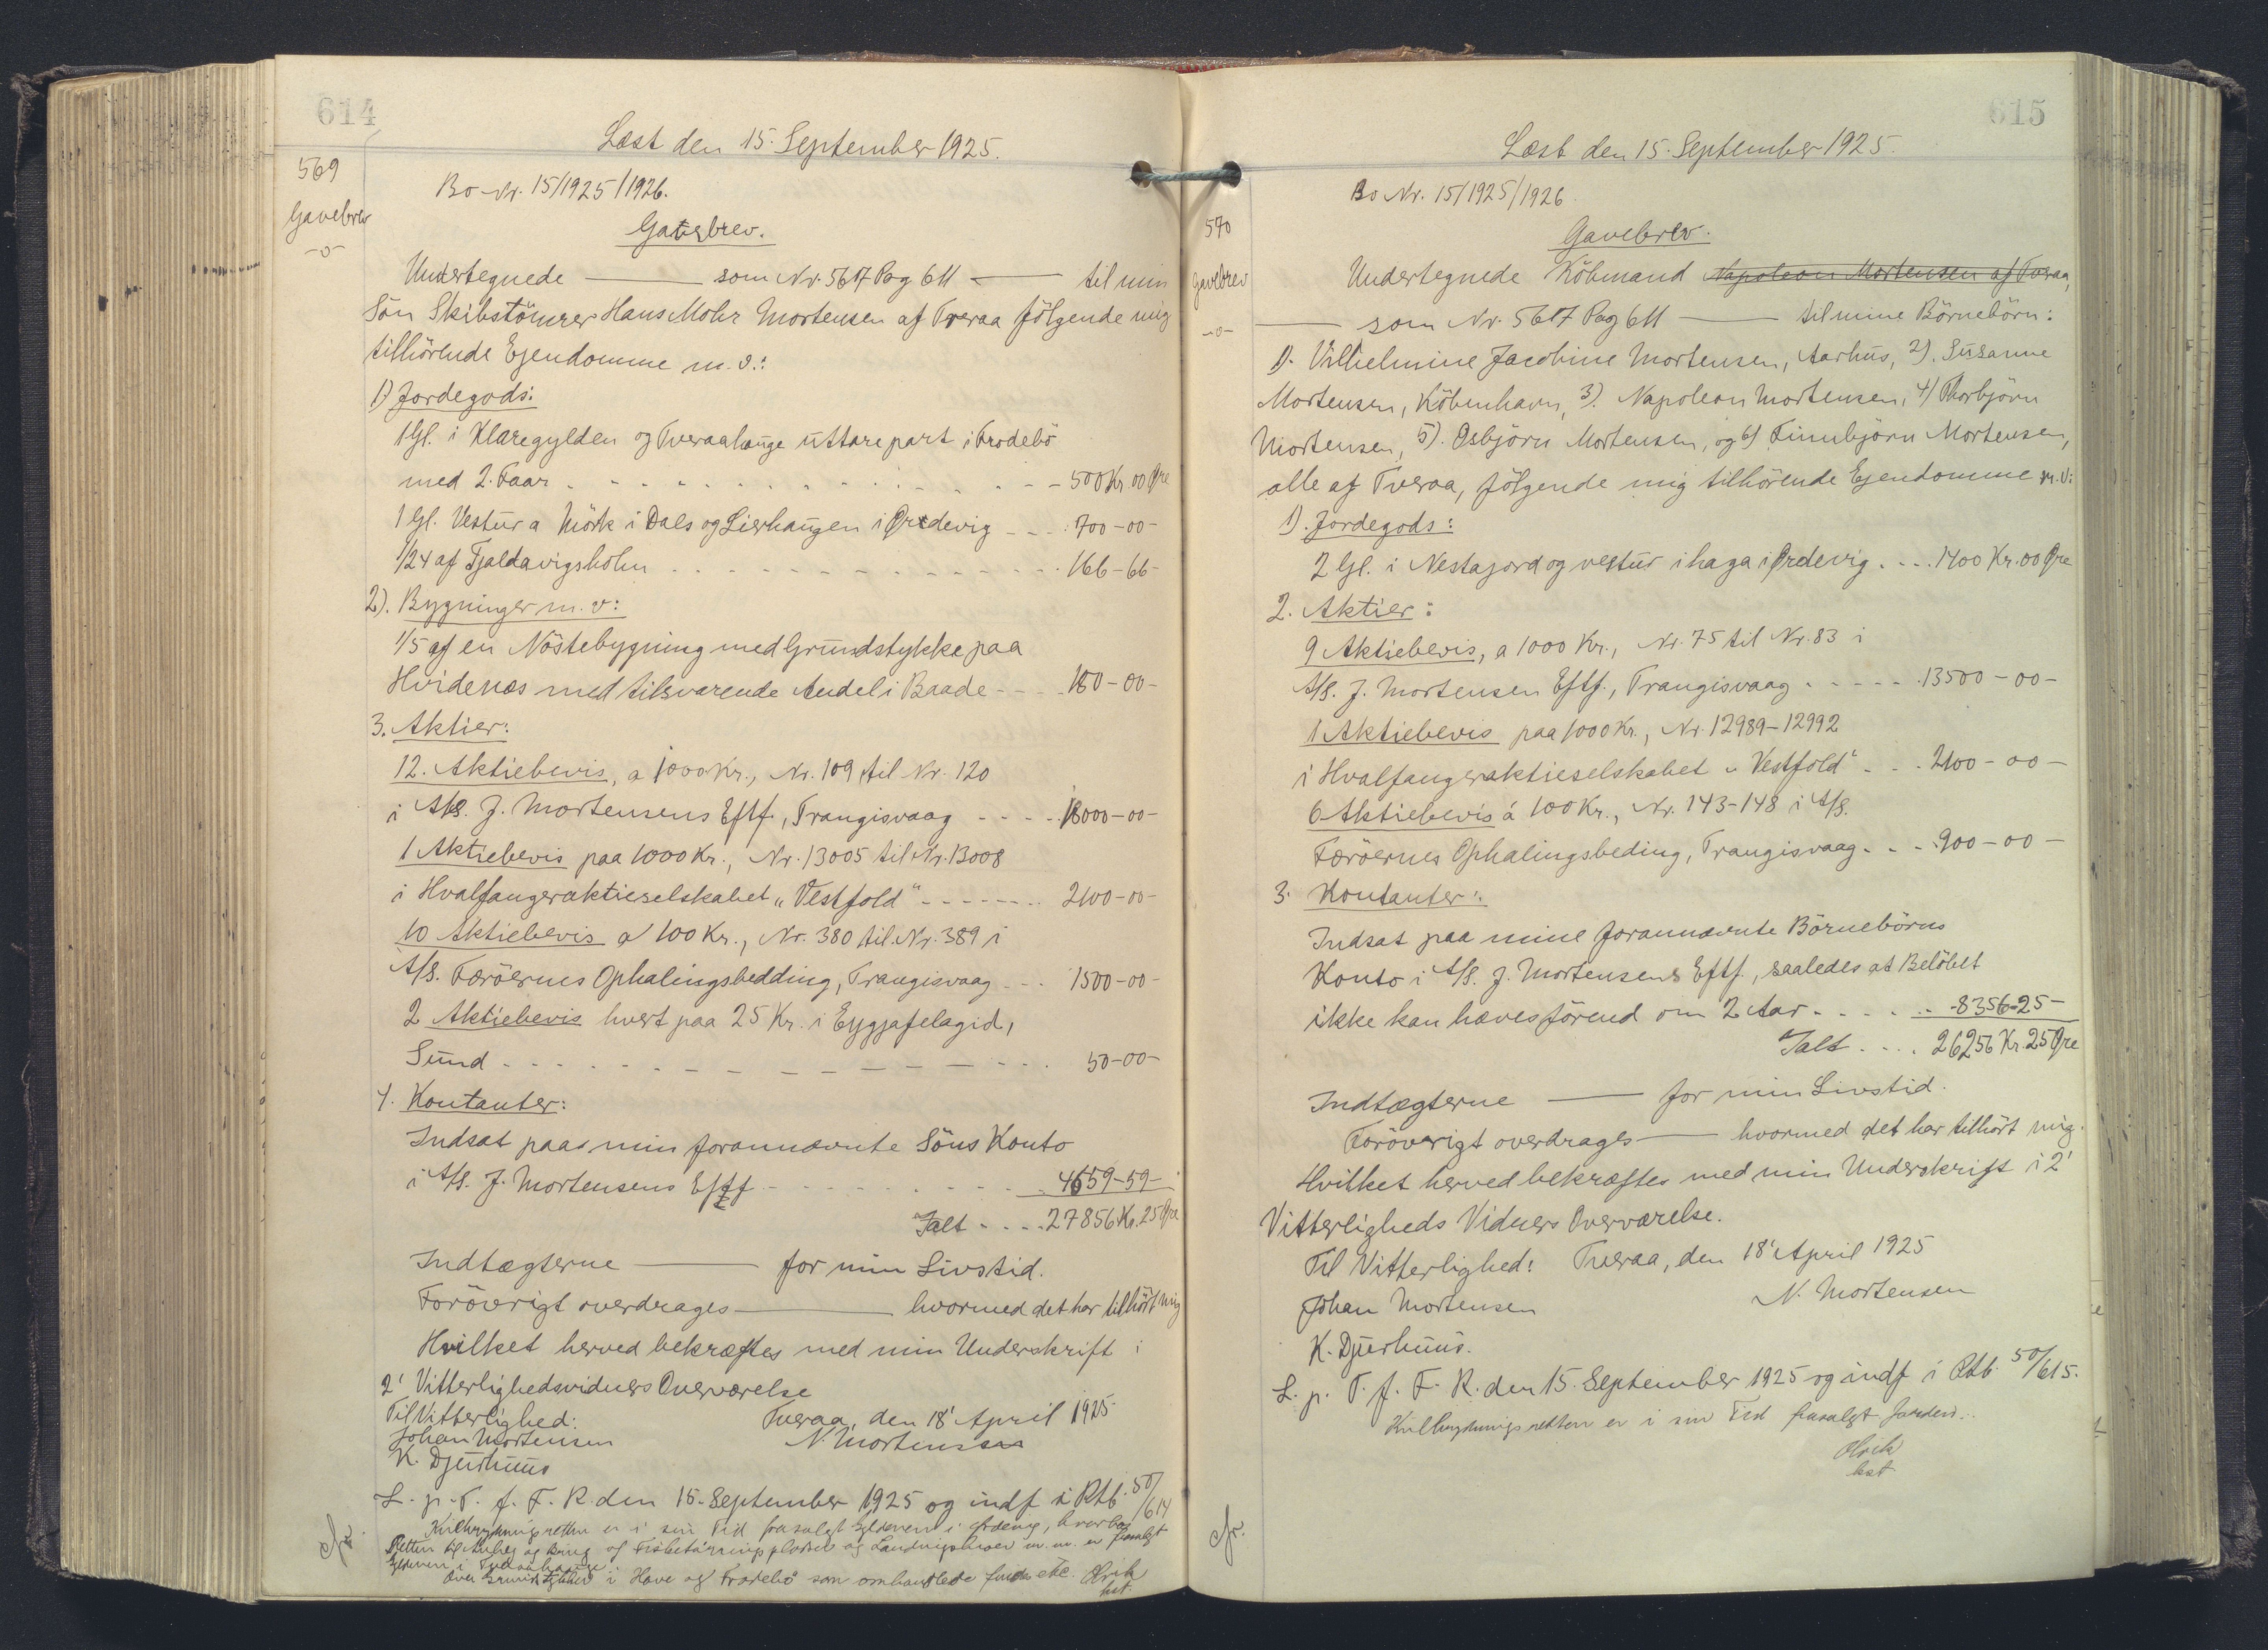 614
Læst den 15. September 1925.
569
Gavebrev
-o-
Bo Nr. 15/1925/1926.
Gavebrev.
Undertegnede ——— som Nr. 567 Pag 611 ——— til min
Sön Skibstömrer Hans Mohr Mortensen af Tveraa fölgende mig
tilhörende Ejendomme m.v.:
1) Jordegods:
1 Gl. i Klaregylden og Tveraahauge uttarepart i Frodebö
med 2. Faar - - - 500 Kr. 00 Øre
1 Gl. Vestur a Mörk i Dals og Lierhaugen i Ørdevig - - - 700-00-
1/24 af Tjaldavigsholm - - - 166-66-
2). Bygninger m.v:
1/5 af en Nöstebygning med Grundstykke paa
Hvidenæs med tilsvarende Andel i Baade - - - 180-00-
3. Aktier:
12. Aktiebevis, a 1000 Kr., Nr. 109 til Nr. 120
i A/S. J. Mortensens Eftf., Trangisvaag - - - 18000-00-
1 Aktiebevis paa 1000 Kr., Nr. 13005 til Nr. 13008
i Hvalfangeraktieselskabet „Vestfold" - - - 2100-00-
10 Aktiebevis a 100 Kr., Nr. 380 til Nr. 389 i
A/S. Færöernes Ophalingsbedding, Trangisvaag - - - 1500-00-
2 Aktiebevis hvert paa 25 Kr. i Eyggjafelagid,
Sund - - - 50-00-
4. Kontanter:
Indsat paa min forannævnte Söns Konto
i A/S. J. Mortensens Eftf - - - 4659-59-
Ialt - - - 27856 Kr. 25 Øre
Indtægterne ——— for min Livstid.
Foröverigt overdrages ——— hvormed det har tilhört mig
Hvilket herved bekræftes med min Underskrift i
2' Vitterlighedsvidners Overværelse
Til Vitterlighed: Tveraa, den 18' April 1925
Johan Mortensen N. Mortensen
K. Djurhuus
L. p. T. f. F. R. den 15. September 1925 og indf i Rtb. 50/614
er i sin Tid frasolgt Gylden i Ørdevig,
Retten til Anlæg og Brug af og Landingsbroer m.m. er frasolgt
Gylden i Tveraahauge
Over i Hove og Frodebö som omhandlede
615
Læst den 15. September 1925.
570
Gavebrev
-o-
Bo Nr. 15/1925/1926.
Gavebrev.
Undertegnede Köbmand Napoleon Mortensen af Tveraa,
——— som Nr. 567 Pag 611 ——— til mine Börnebörn:
1). Vilhelmine Jacobine Mortensen, Aarhus, 2). Susanne
Mortensen, Köbenhavn, 3). Napoleon Mortensen, 4) Thorbjörn
Mortensen, 5). Osbjörn Mortensen, og 6) Finnbjörn Mortensen,
alle af Tveraa, fölgende mig tilhörende Ejendomme m.v:
1). Jordegods:
2 Gl. i Nestajord og vestur i haga i Ørdevig - - - 1400 Kr. 00 Øre
2. Aktier:
9 Aktiebevis, a 1000 Kr., Nr. 75 til Nr. 83 i
A/S. J. Mortensen Eftf., Trangisvaag - - - 13500-00-
1 Aktiebevis paa 1000 Kr., Nr. 12989-12992
i Hvalfangeraktieselskabet „Vestfold" - - - 2100-00-
6 Aktiebevis á 100 Kr., Nr. 143-148 i A/S.
Færöernes Ophalingsbeding, Trangisvaag - - - 900-00-
3. Kontanter:
Indsat paa mine forannævnte Börnebörns
Konto i A/S. J. Mortensens Eftf., saaledes at Belöbet
ikke kan hæves förend om 2 Aar - - - 8356-25-
Ialt - - - 26256 Kr. 25 Øre
Indtægterne ——— for min Livstid.
Foröverigt overdrages ——— hvormed det har tilhört mig.
Hvilket herved bekræftes med min Underskrift i 2'
Vitterligheds Vidners Overværelse.
Til Vitterlighed: Tveraa, den 18' April 1925
Johan Mortensen N. Mortensen
K. Djurhuus.
L. p. T. f. F. R. den 15. September 1925 og indf i Rtb. 50/615.
Kulbrydningsretten er i sin Tid frasolgt Jorden.